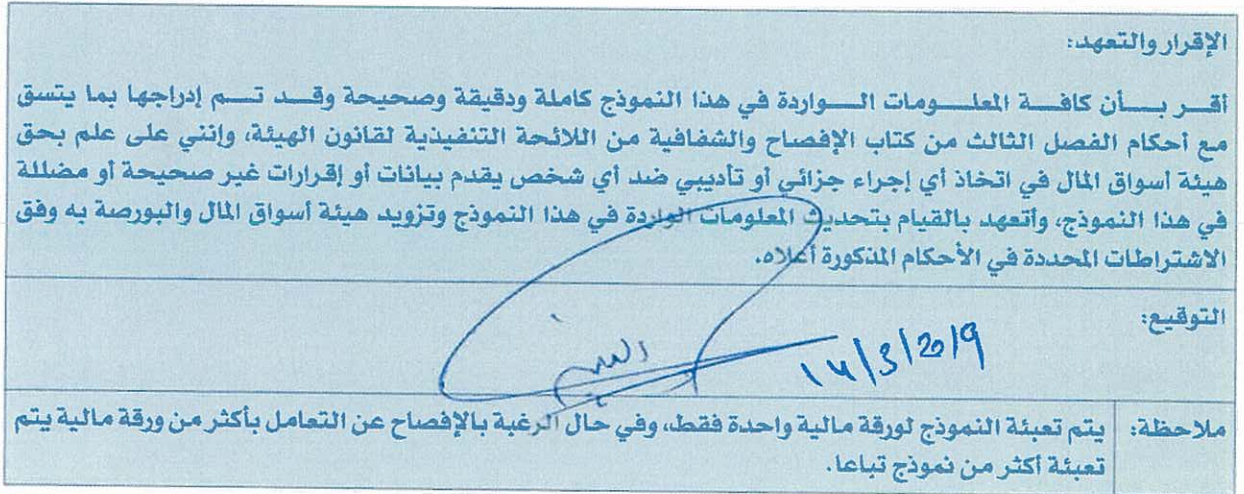 الإقرار والتعهد:
أقر بـــأن كافـــة المعلـــومات الـــواردة في هذا النموذج كاملة ودقيقة وصحيحة وقـــد تـــم إدراجها بما يتسق
مع أحكام الفصل الثالث من كتاب الإفصاح والشفافية من اللائحة التنفيذية لقانون الهيئة، وإنني على علم بحق
هيئة أسواق المال في اتخاذ أي إجراء جزائي أو تأديبي ضد أي شخص يقدم بيانات أو إقرارات غير صحيحة أو مضللة
في هذا النموذج، وأتعهد بالقيام بتحديث المعلومات الواردة في هذا النموذج وتزويد هيئة أسواق المال والبورصة به وفق
الاشتراطات المحددة في الأحكام المذكورة أعلاه.
التوقيع:
ملاحظة: يتم تعبئة النموذج لورقة مالية واحدة فقط، وفي حال الرغبة بالإفصاح عن التعامل بأكثر من ورقة مالية يتم
تعبئة أكثر من نموذج تباعا.